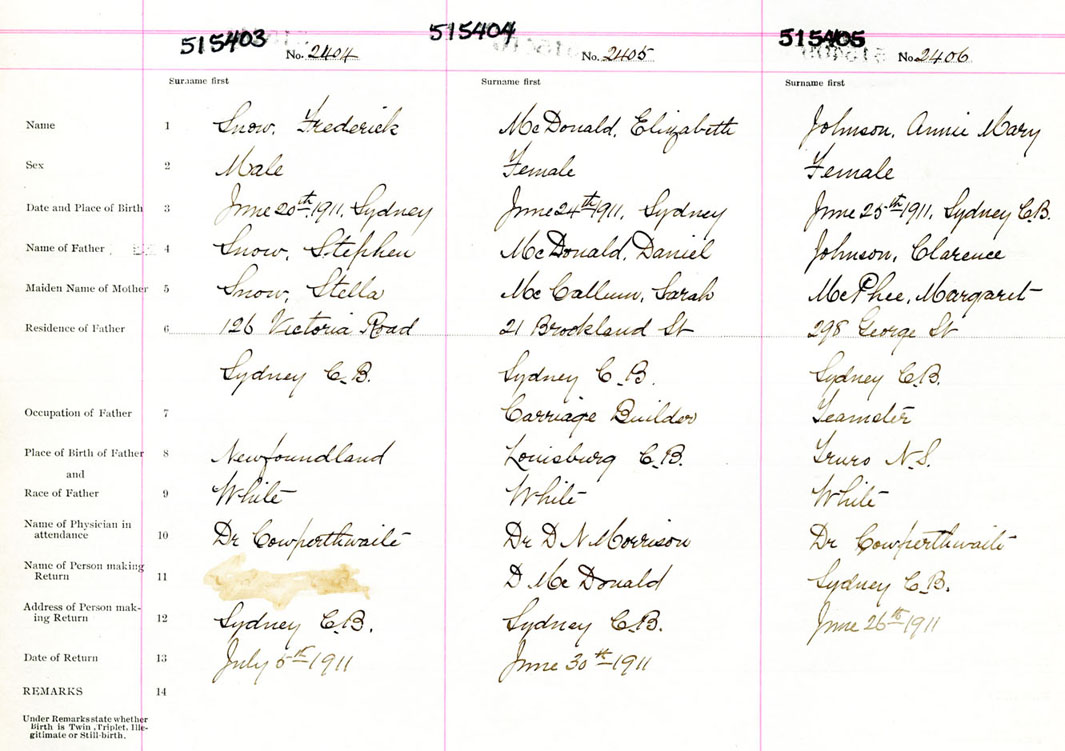 515403
515404
515405
No. 2404
No. 2405
No. 2406
Surname first
Surname first
Surname first
Name 1 Snow, Frederick McDonald, Elizabeth Johnson, Annie Mary
Sex 2 Male Female Female
Date and Place of Birth 3 June 20th 1911, Sydney June 24th 1911, Sydney June 25th 1911, Sydney C.B.
Name of Father 4 Snow, Stephen McDonald, Daniel Johnson, Clarence
Maiden Name of Mother 5 Snow, Stella McCallum, Sarah McPhee, Margaret
Residence of Father 6 126 Victoria Road 21 Brookland St 298 George St
Sydney C.B. Sydney C.B. Sydney C.B.
Occupation of Father 7 Carriage Builder Teamster
Place of Birth of Father 8 Newfoundland Louisburg C.B. Truro N.S.
and
Race of Father 9 White White White
Name of Physician in
attendance 10 Dr Cowperthwaite Dr D N Morrison Dr Cowperthwaite
Name of Person making
Return 11 D McDonald Sydney C.B.
Address of Person mak-
ing Return 12 Sydney C.B. Sydney C.B. June 26th 1911
Date of Return 13 July 5th 1911 June 30th 1911
REMARKS 14
Under Remarks state whether
Birth is Twin, Triplet, Ille-
gitimate or Still-birth.